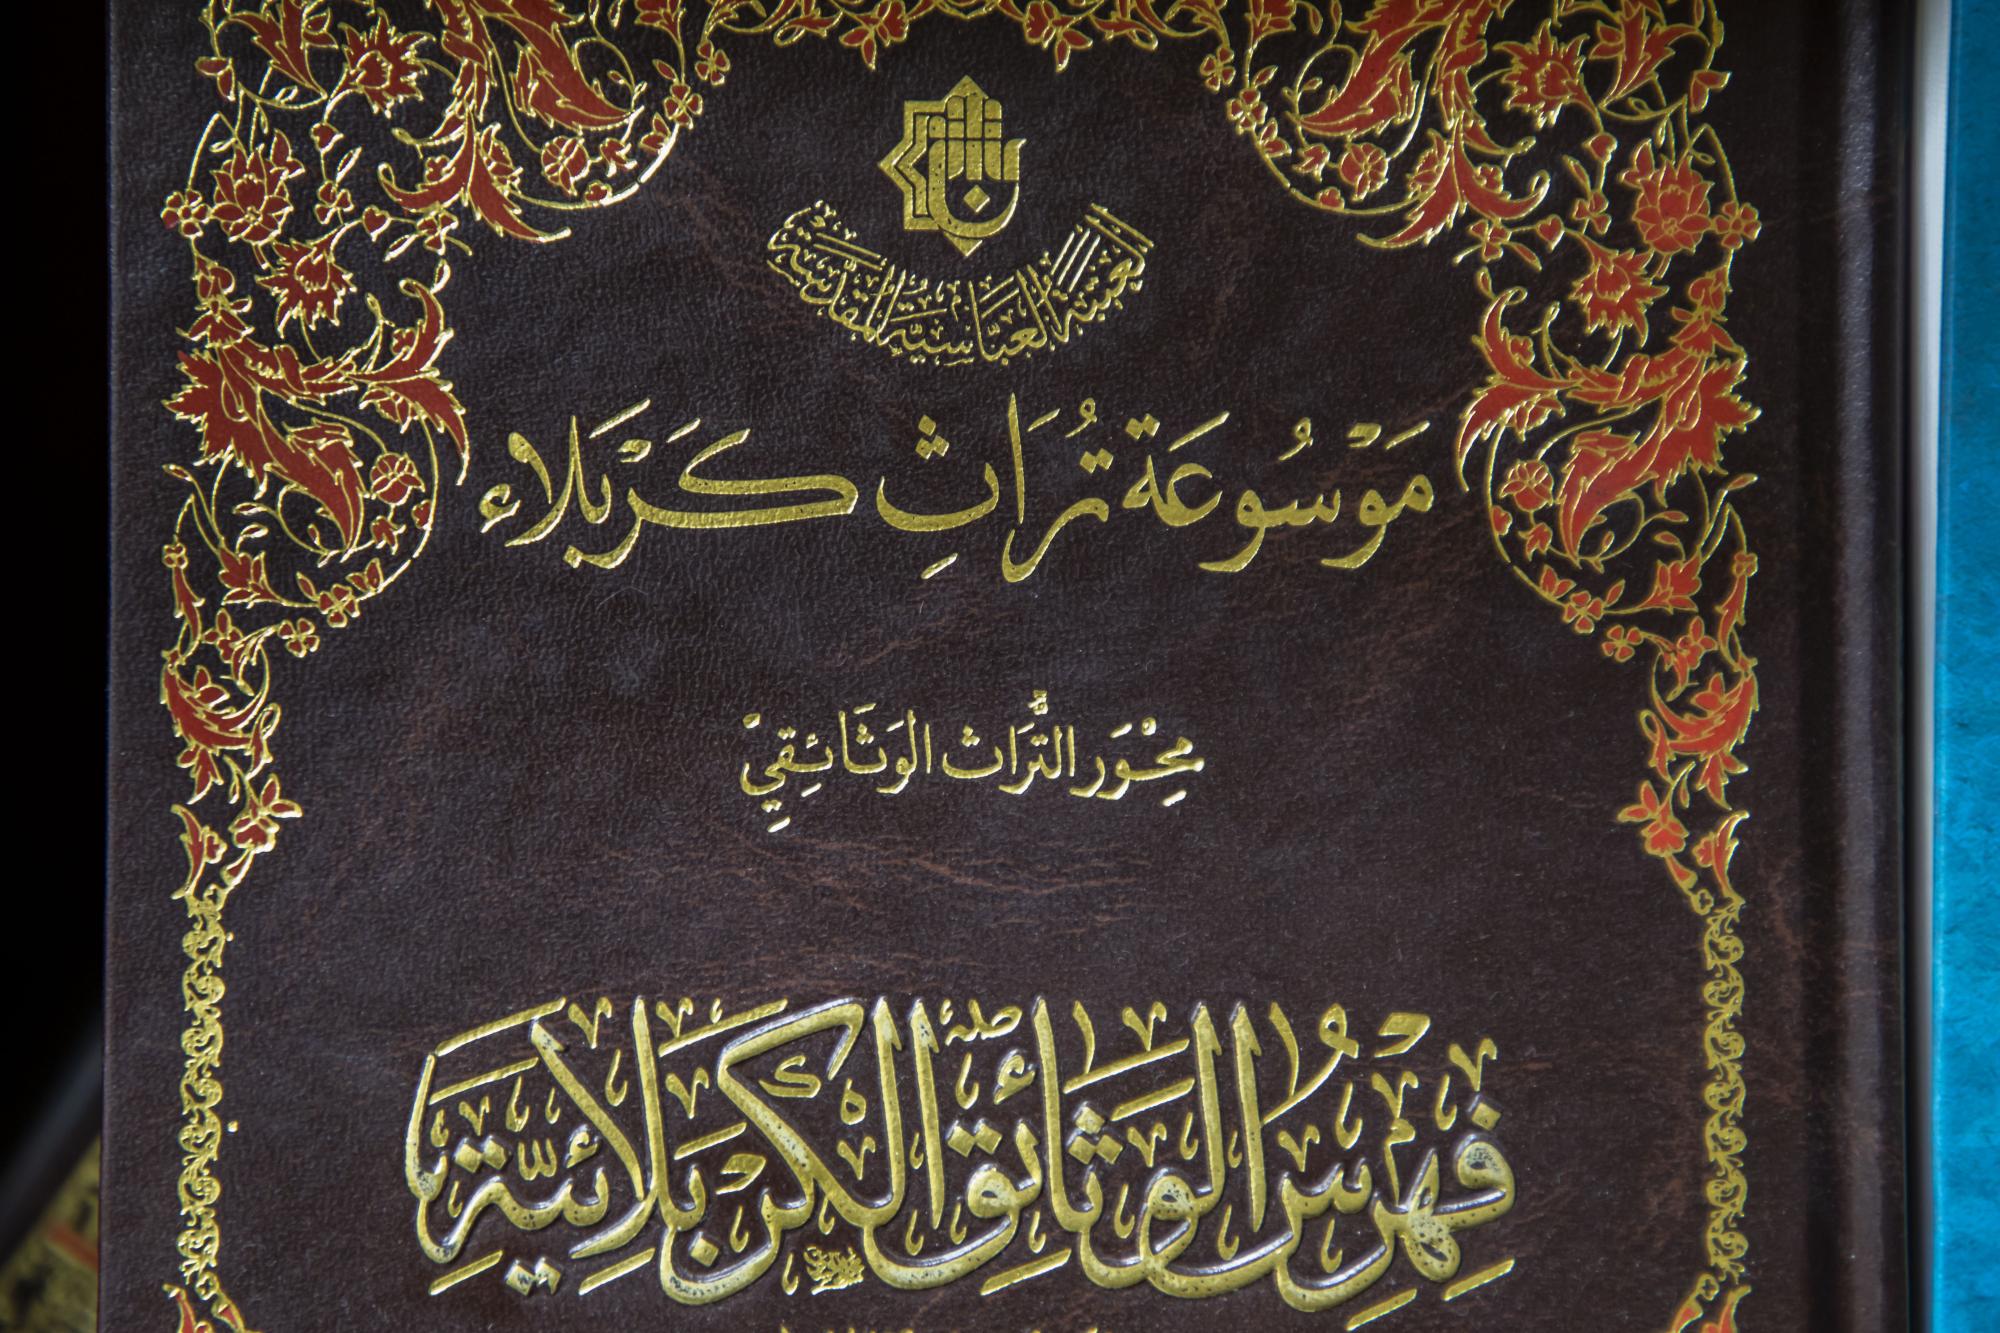 العتبة العباسية المقدسة
مَوْسُوعَة تُرَاثِ كَرْبَلَاء
مِحْوَر التُّرَاث الوَثَائِقِيْ
فِهْرِسُ الْوَثَائِقِ الْكَرْبَلَائِيَّةِ